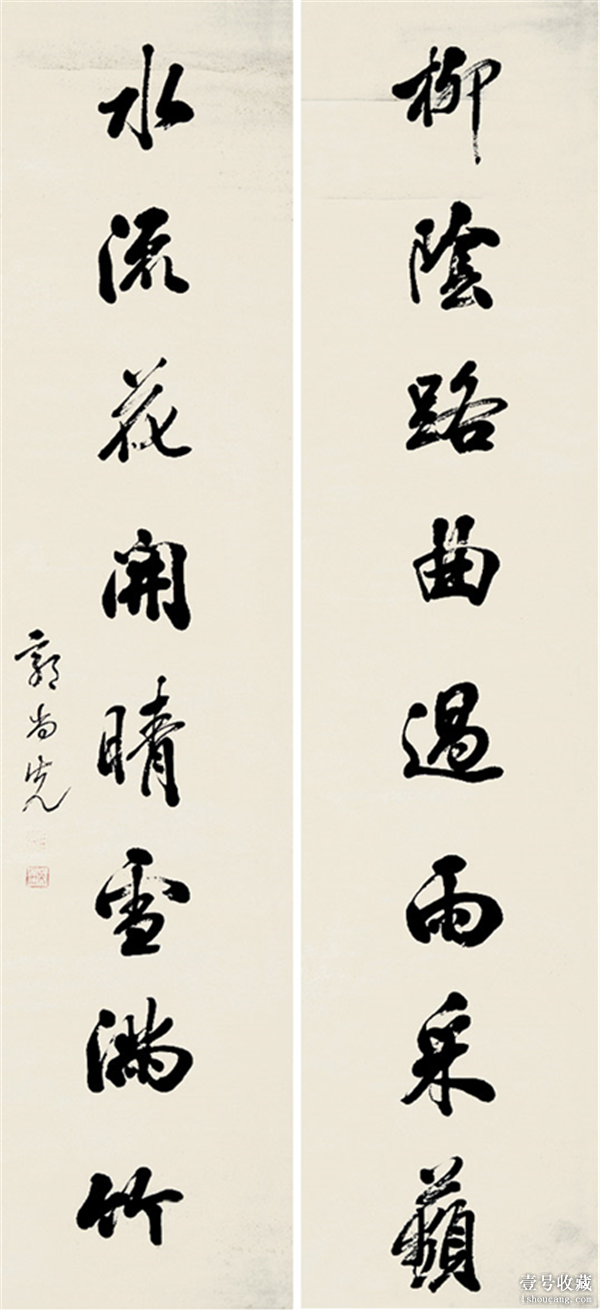 柳陰路曲過雨采蘋
水流花開晴雪滿竹
郭尚先
壹号收藏
1shoucang.com